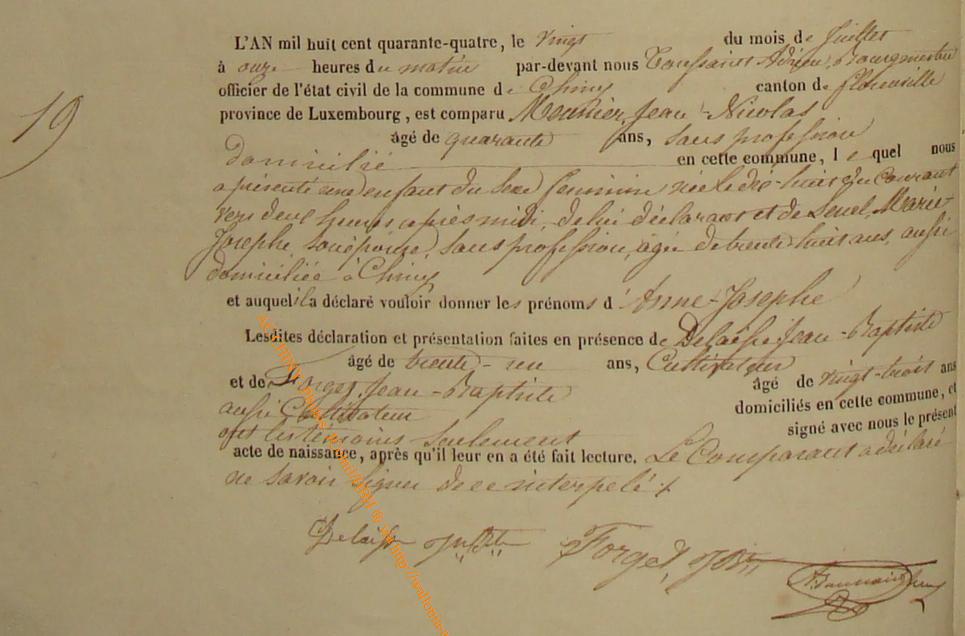 19
L'AN mil huit cent quarante-quatre, le vingt du mois de Juillet
à onze heures du matin par-devant nous Toussaint Adrien, Bourgmestre
officier de l'état civil de la commune de Chiny canton de Florenville
province de Luxembourg, est comparu Meunier, Jean-Nicolas
âgé de quarante ans, sans profession
domicilié en cette commune, lequel nous
a présenté une enfant du sexe féminin née le dix-huit du Courant
vers deux heures après midi, de lui déclarant et de Marie-
Josephe, son épouse, sans profession, âgée de trente-huit ans, aussi
domiciliée à Chiny
et auquel il a déclaré vouloir donner les prénoms d'Anne-Josephe
Lesdites déclaration et présentation faites en présence de Jean-Baptiste
âgé de trente-un ans, Cultivateur
et de Forget, Jean-Baptiste âgé de vingt-trois ans
aussi Cultivateur domiciliés en cette commune, et
ont les témoins seulement signé avec nous le présent
acte de naissance, après qu'il leur en a été fait lecture. Le Comparant a déclaré
ne savoir signer de ce interpelé
Forget